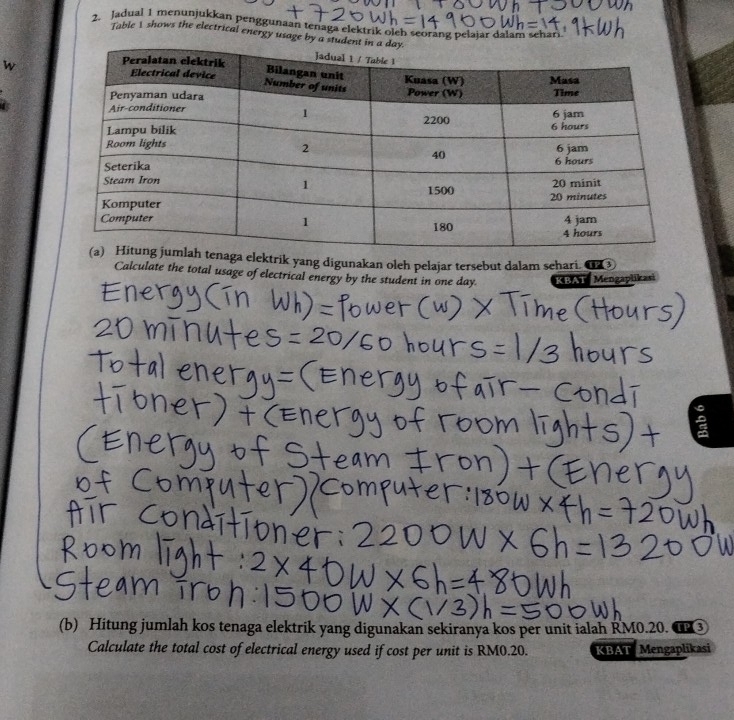 +480Wh+500Wh
+720Wh=14900Wh=14.9kWh
2. Jadual 1 menunjukkan penggunaan tenaga elektrik oleh seorang pelajar dalam sehari.
Table 1 shows the electrical energy usage by a student in a day.
Jadual 1 / Table 1
Peralatan elektrik Bilangan unit Kuasa (W) Masa
Electrical device Number of units Power (W) Time
Penyaman udara 1 2200 6 jam
Air-conditioner 6 hours
Lampu bilik 2 40 6 jam
Room lights 6 hours
Seterika 1 1500 20 minit
Steam Iron 20 minutes
Komputer 1 180 4 jam
Computer 4 hours
(a) Hitung jumlah tenaga elektrik yang digunakan oleh pelajar tersebut dalam sehari. TP 3
Calculate the total usage of electrical energy by the student in one day. KBAT Mengaplikasi
Energy(in Wh)=Power(W) X Time(Hours)
20 minutes=20/60 hours=1/3 hours
Total energy=(Energy of air-condi
tioner)+(Energy of room lights)+
(Energy of Steam Iron)+(Energy
of Computer)) Computer:180W×4h=720Wh
Air conditioner:2200W×6h=13200W
Room light:2×40W×6h=480Wh
Steam iron:1500W×(1/3)h=500Wh
Bab 6
(b) Hitung jumlah kos tenaga elektrik yang digunakan sekiranya kos per unit ialah RM0.20. TP 3
Calculate the total cost of electrical energy used if cost per unit is RM0.20. KBAT Mengaplikasi
W